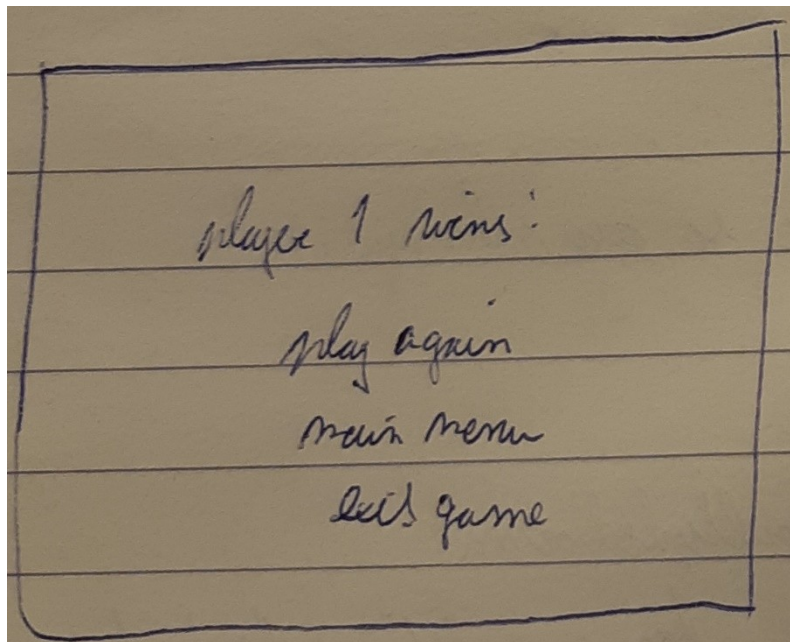 player 1 wins!
play again
main menu
exit game